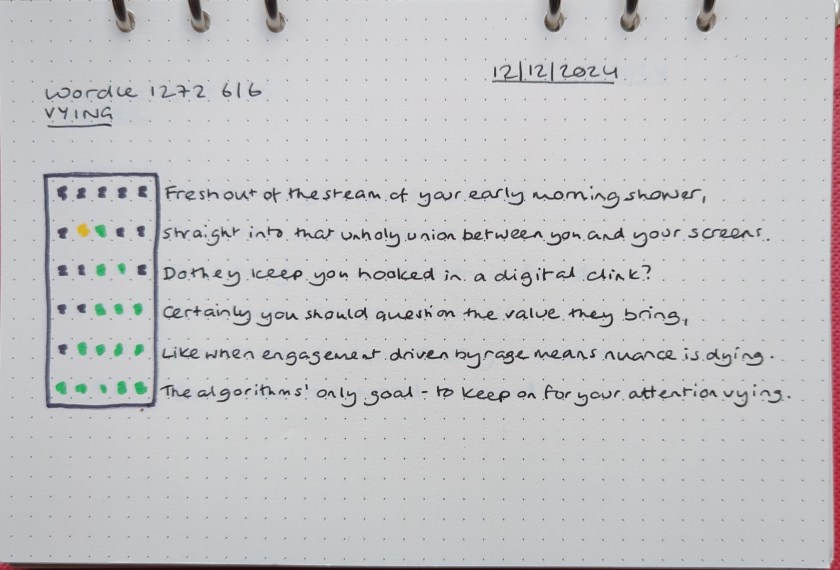 12/12/2024
Wordle 1272 6/6
VYING
Fresh out of the steam of your early morning shower,
straight into that unholy union between you and your screens.
Do they keep you hooked in a digital clink?
Certainly you should question the value they bring,
Like when engagement driven by rage means nuance is dying.
The algorithms' only goal - to keep on for your attention vying.